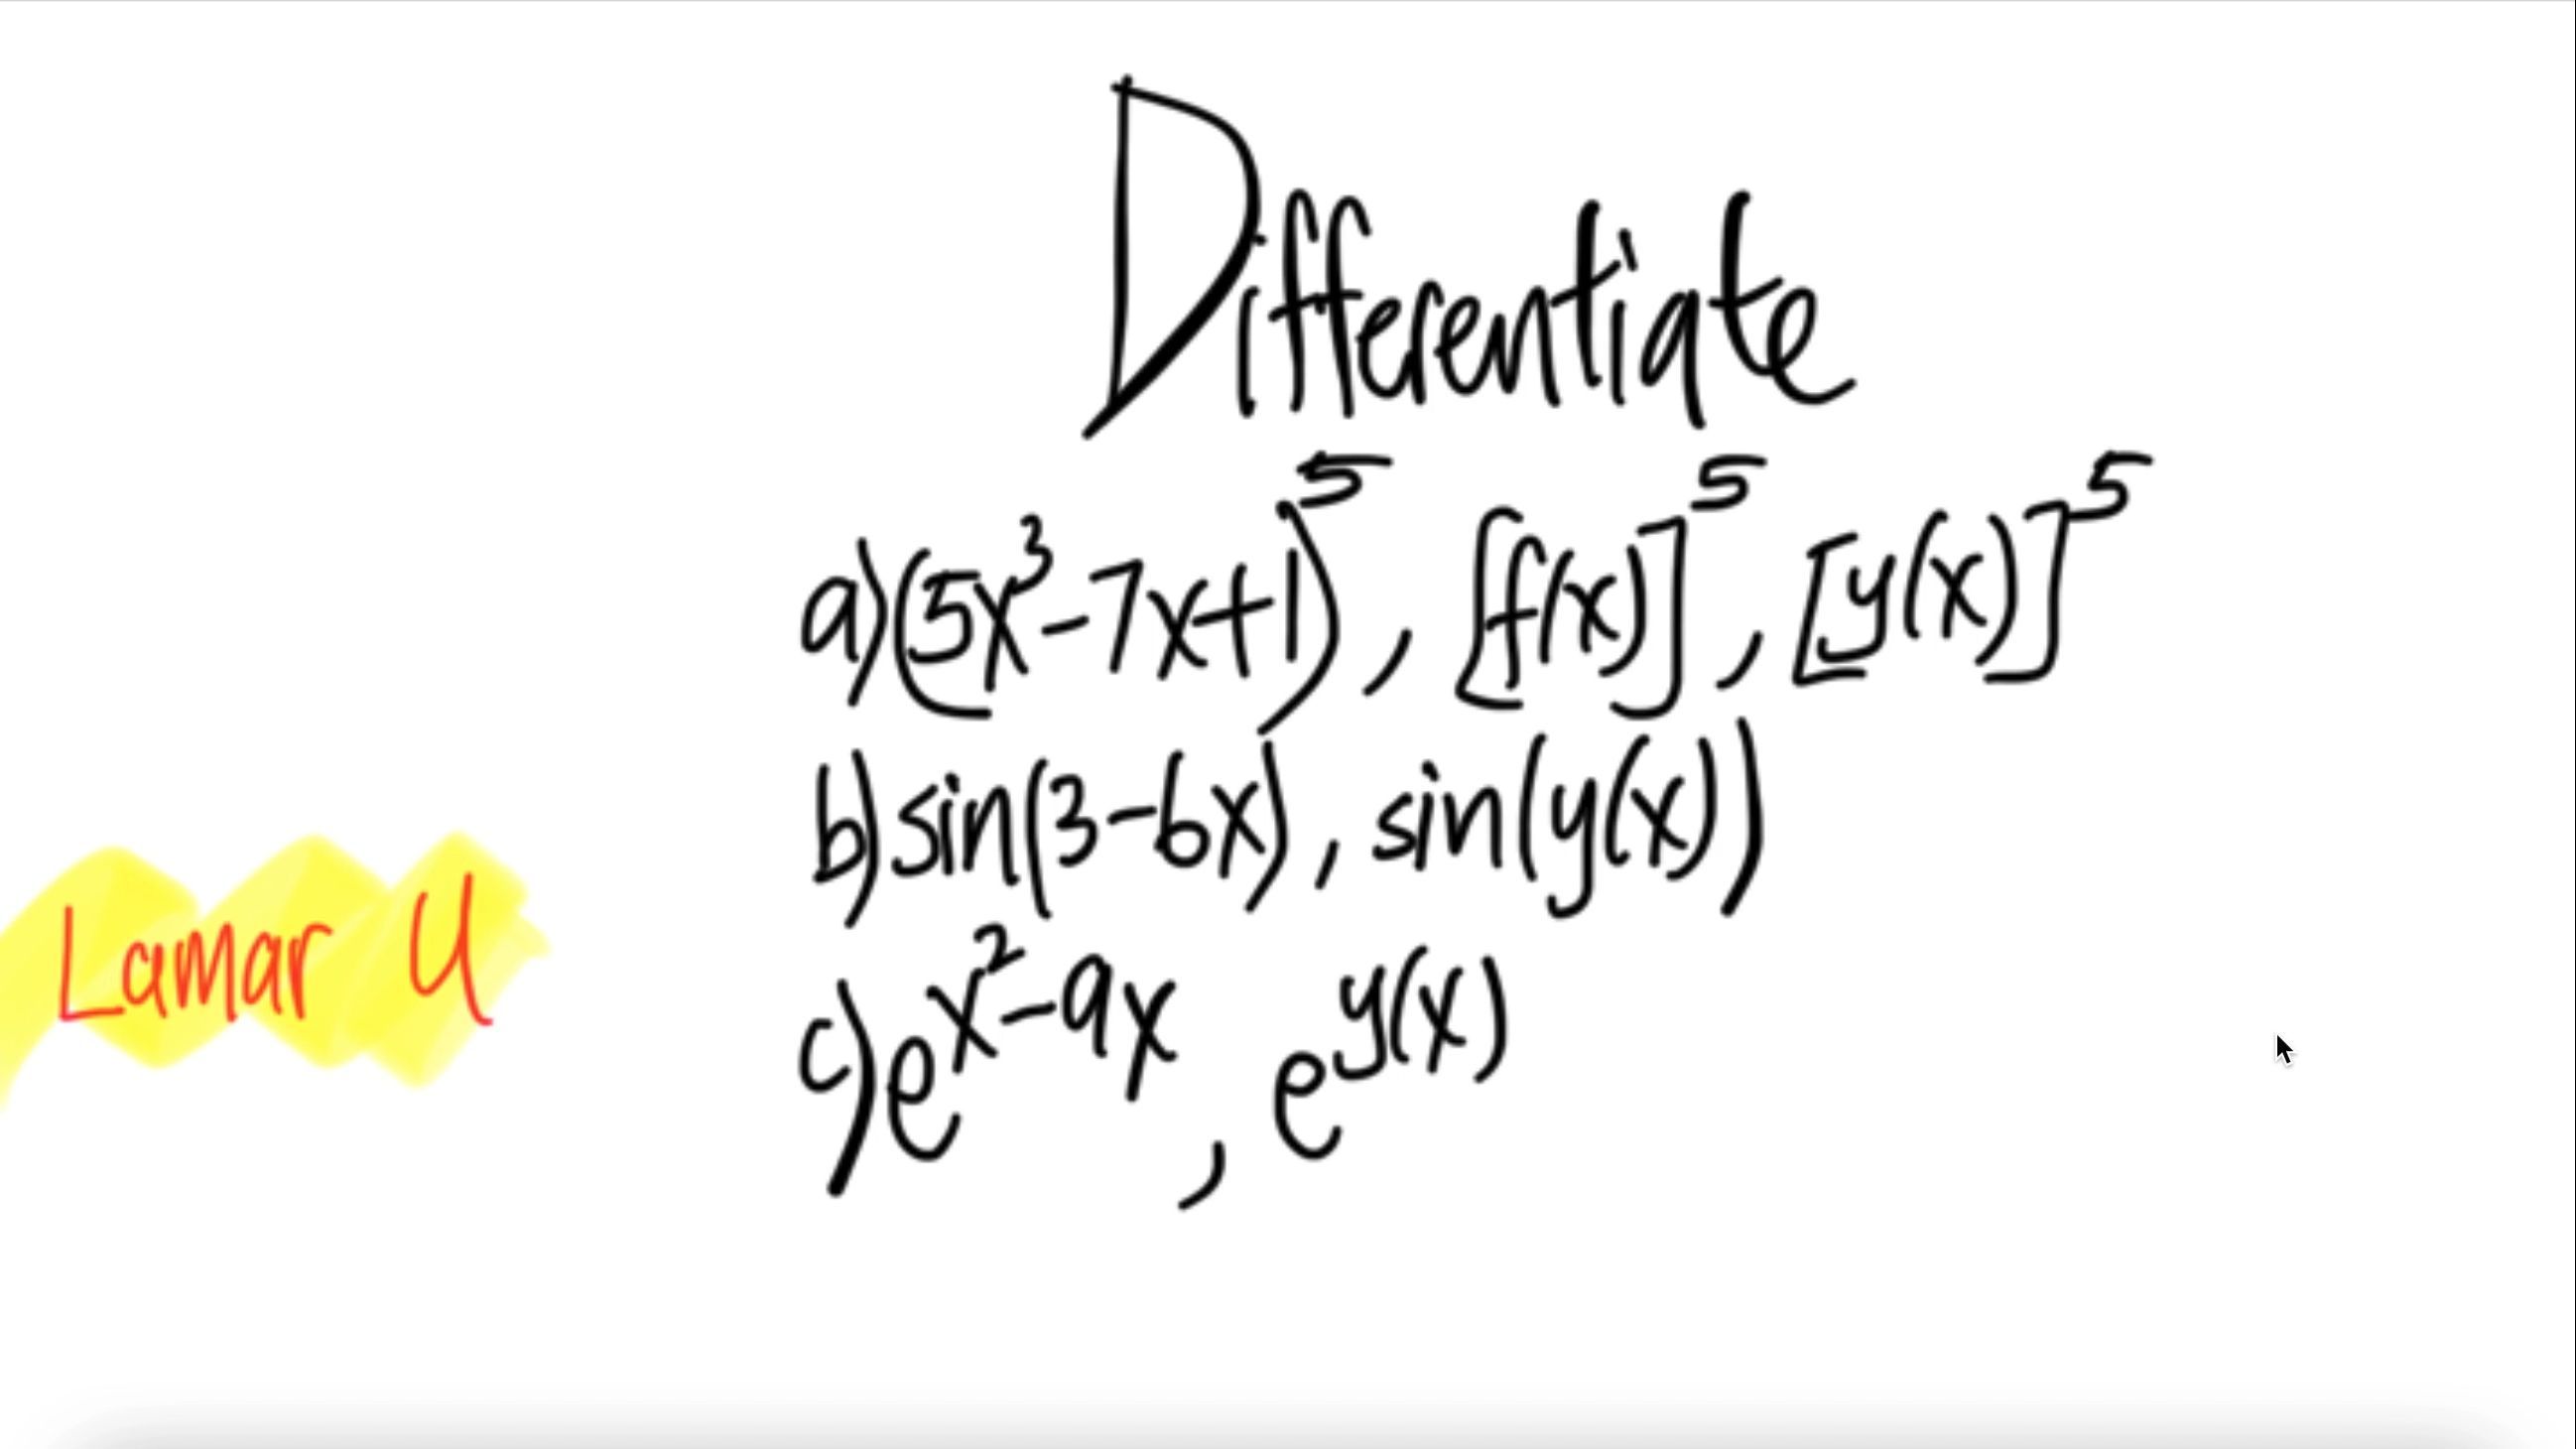 Differentiate
a) (5x³-7x+1)⁵, [f(x)]⁵, [y(x)]⁵
b) sin(3-6x), sin(y(x))
Lamar U
c) e^x²-9x, e^y(x)